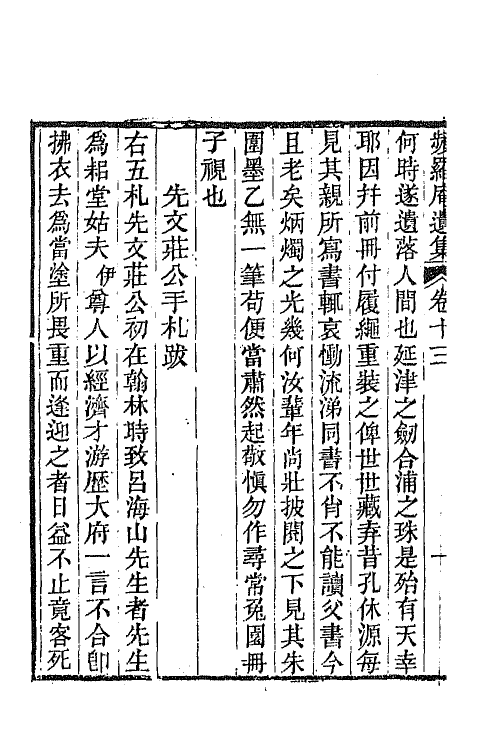 㼌羅庵遺集 卷十三 十
何時遂遺落人間也延津之劒合浦之珠是殆有天幸
耶因幷前冊付履繩重裝之俾世世藏弆昔孔休源每
見其親所寫書輒哀慟流涕同書不肖不能讀父書今
且老矣炳燭之光幾何汝輩年尚壯披閱之下見其朱
圍墨乙無一筆苟便當肅然起敬愼勿作尋常兔園冊
子視也
先文莊公手札跋
右五札先文莊公初在翰林時致呂海山先生者先生
爲耜堂姑夫伊尊人以經濟才游歷大府一言不合卽
拂衣去爲當塗所畏重而逢迎之者日益不止竟客死